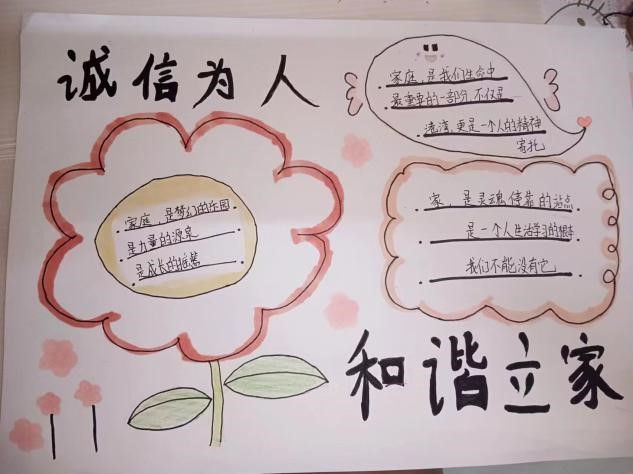 诚信为人
家庭，是我们生命中
最重要的一部分，不仅是
港湾，更是一个人的精神
寄托
家庭，是梦幻的乐园
是力量的源泉
是成长的摇篮
家，是灵魂停靠的站点
是一个人生活学习的根本
我们不能没有它
和谐立家